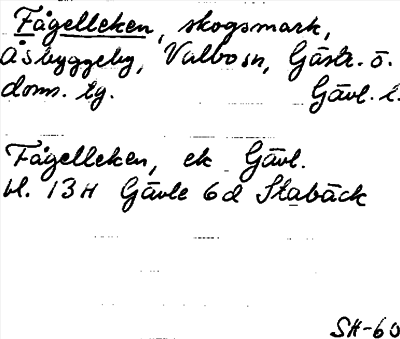 Fågelleken, skogsmark,
Åsbyggeby, Valbo sn, Gästr. ö.
doms. lg. Gävl. l.
Fågelleken, ek Gävl.
bl. 13H Gävle 6d Stabäck
SH-60